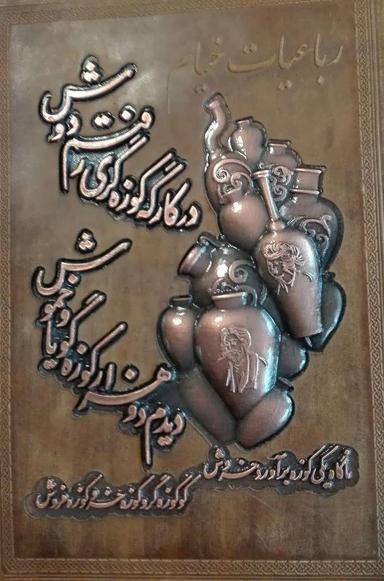 رباعیات خیام
در کارگه کوزه گری رفتم دوش
دیدم دو هزار کوزه گویا و خموش
ناگاه یکی کوزه برآورد خروش
کو کوزه گر و کوزه خر و کوزه فروش